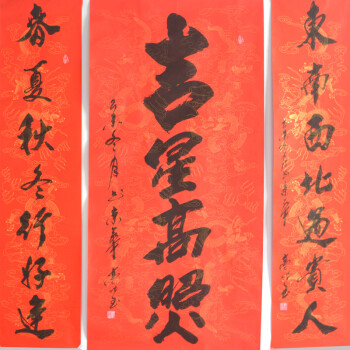 東南西北遇貴人
吉星高照
春夏秋冬行好運